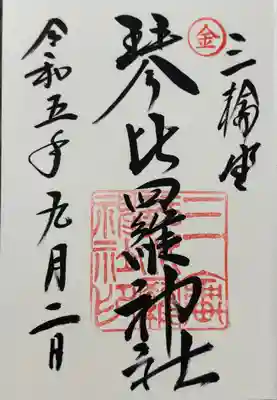 金
三輪坐
琴比羅神社
令和五年九月二日